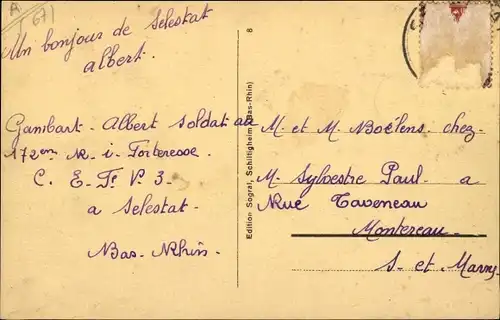 A
671
Un bonjour de Selestat
albert.
Gambart - Albert soldat au
172em R - i - Forteresse.
C. E. Ft V. 3.
a Selestat.
Bas-Rhin.
Edition Sogral, Schiltigheim (Bas-Rhin)
8
M. et M. Boëlens chez-
M. Sylvestre Paul - a
Rue Taveneau
Montereau
S - et - Marne